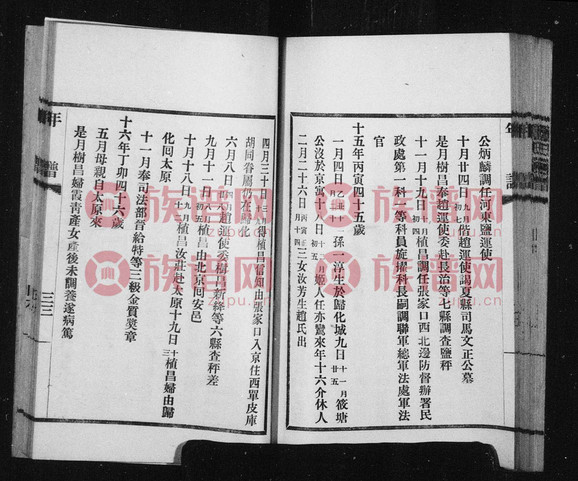 公炳麟調任河東鹽運使
十月廿四日九月初七偕趙運使謁夏縣司馬文正公墓
是月樹昌奉趙運使委赴長治等七縣調查鹽秤
十一月十九日十月初四植昌調任張家口西北邊防督辦署民
政處第一科一等科員旋擢科長嗣調聯軍總軍法處軍法
官
十五年丙寅四十五歲
一月四日乙丑十一孫一浮生於歸化城九日十一月廿五筱塘
公沒於京寅十八日初五姬人任亦鸞來年十六介休人
二月二十六日丙寅正月十四三女汝芳生趙氏出
四月三十日得植昌信知由張家口入京住西單皮庫
胡同眷屬仍在歸化
六月八日四趙運使委樹昌新絳等六縣查秤差
九月十一日八月初五植昌由北京回安邑
十月十八日九月植昌汝莊赴太原十九日十三植昌婦由歸
化回太原
十一月奉司法部晉給特等三級金質奬章
十六年丁卯四十六歲
五月母親自太原來
是月樹昌婦霞靑產女產後未調養遂病篤
年譜
三三
族譜网
zupu.cn